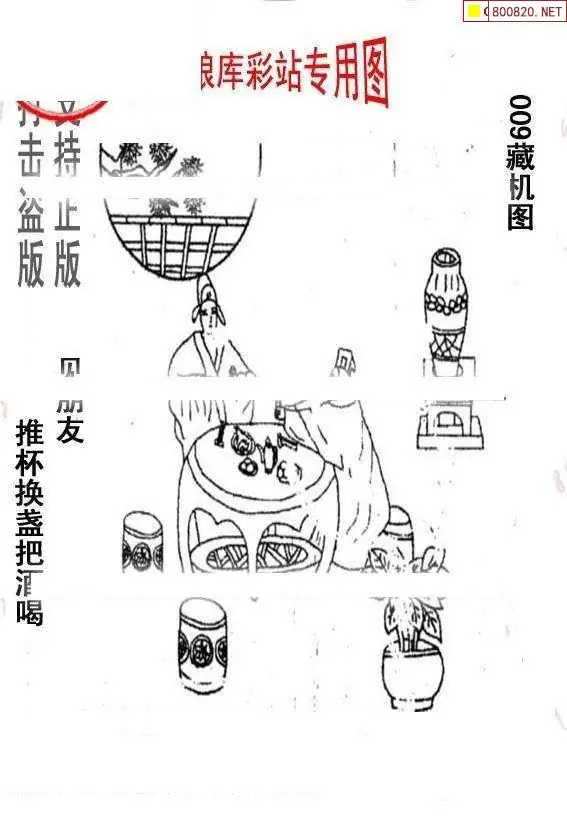 800820.NET
库彩站专用图
009藏机图
支持正版
打击盗版
见朋友
推杯换盏把酒喝